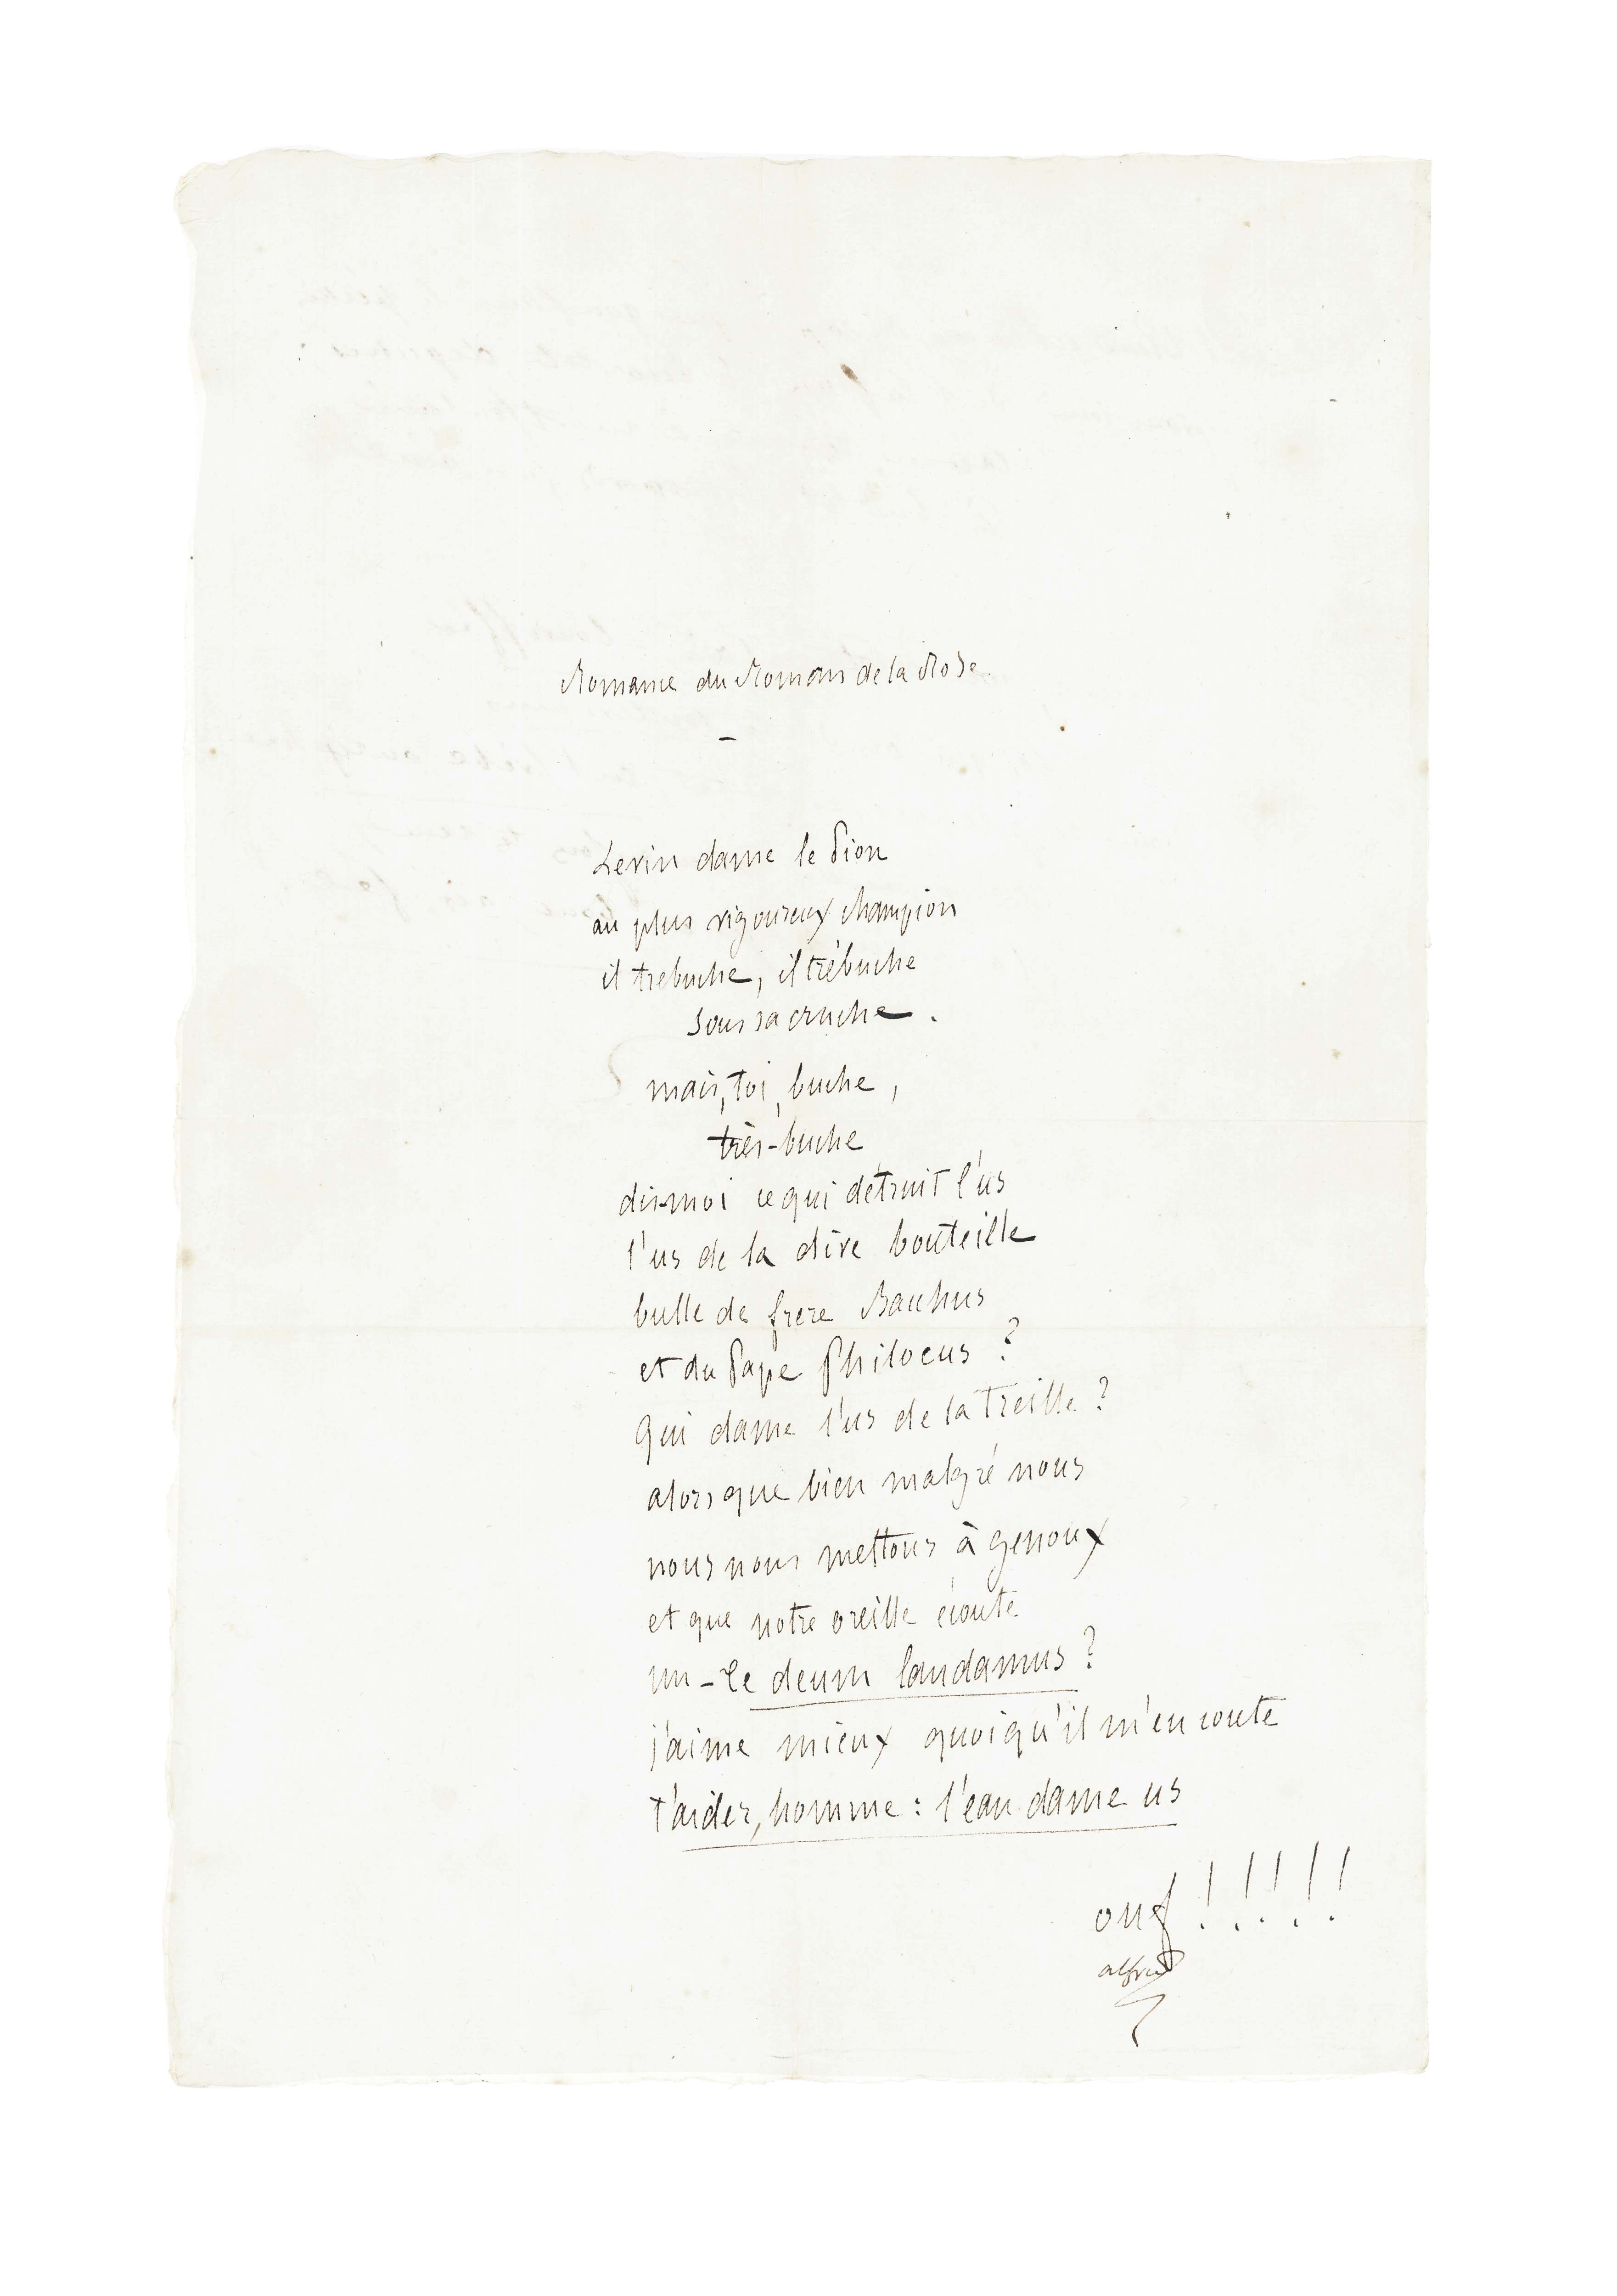 Romance du Roman de la Rose.
-
Le vin dame le Pion
au plus vigoureux champion
il trebuche, il trébuche
sous sa cruche.
mais, toi, buche,
très-buche
dis-moi ce qui détruit l'us
l'us de la dive bouteille
bulle de frere Bacchus
et du Pape Philocus ?
Qui dame l'us de la Treille ?
alors que bien malgré nous
nous nous mettons à genoux
et que notre oreille écoute
un - Te deum laudamus ?
j'aime mieux quoiqu'il m'en coute
t'aider, homme : l'eau dame us
ouf ! ! ! ! !
alfred